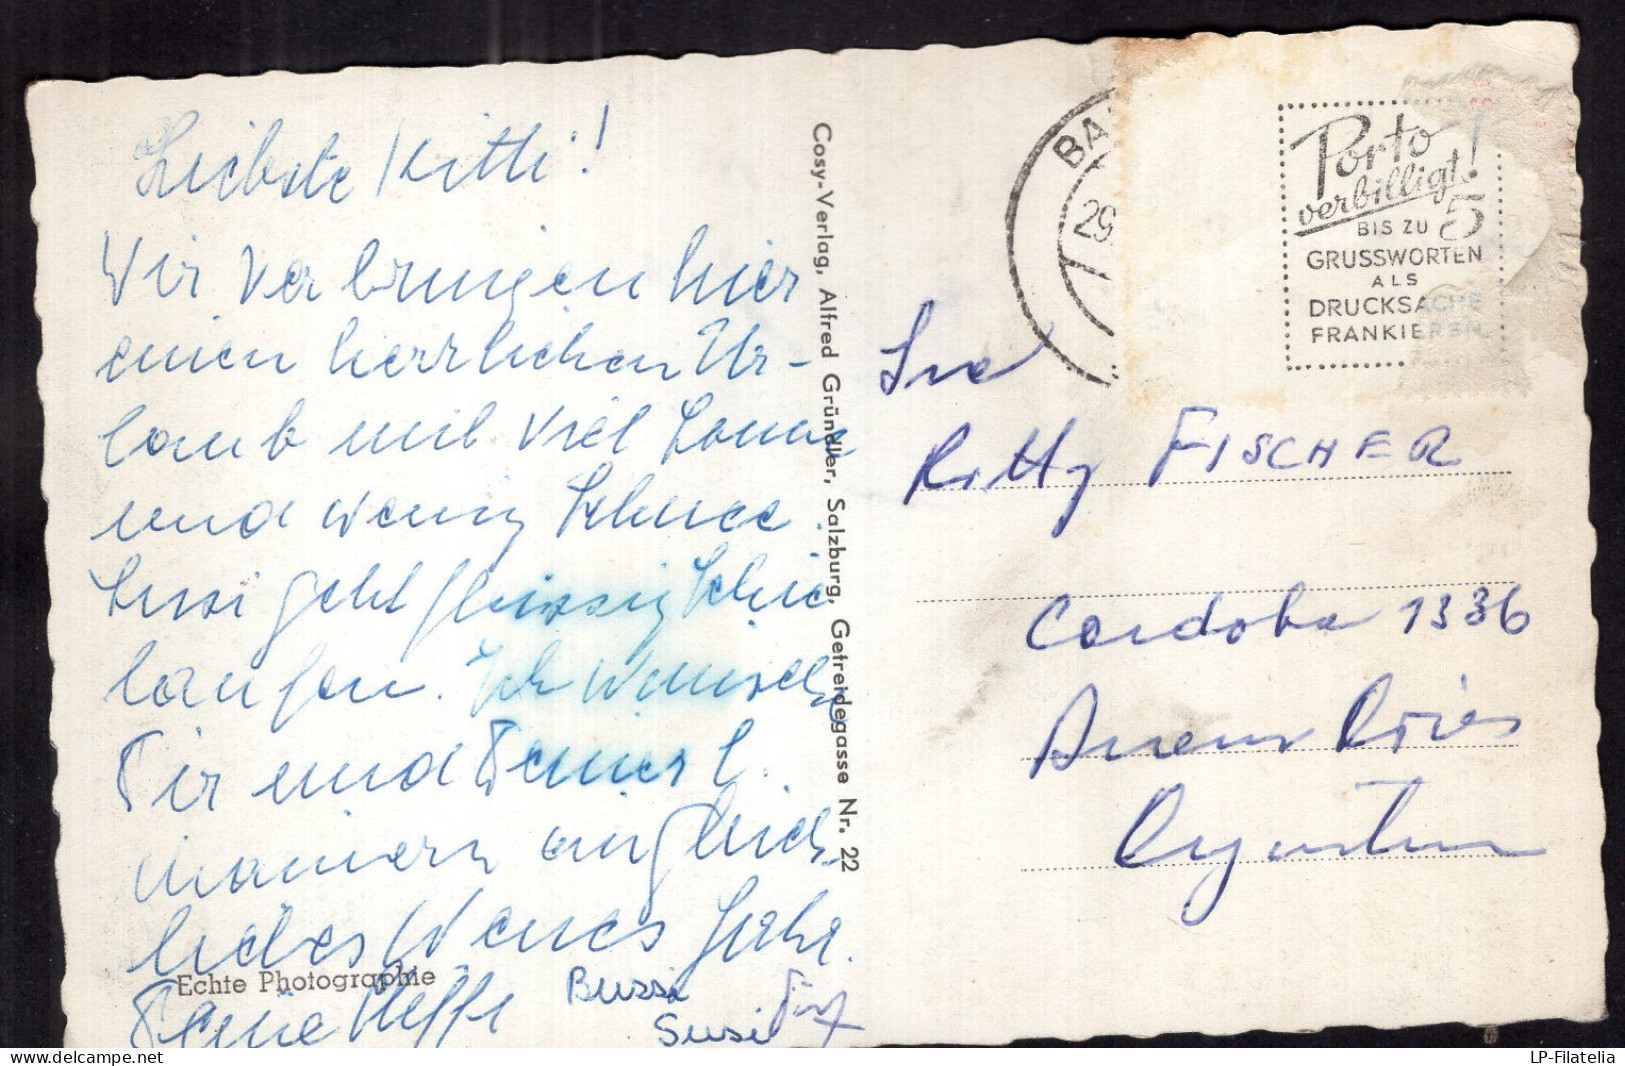 Liebste Kitti!
Wir verbringen hier
einen herrlichen Ur-
laub mit viel Sonne
und wenig Schnee.
Susi geht fleissig Schie
laufen. Ich wünsche
Dir und Deinen l.
Männern ein glück-
liches Neues Jahr.
Deine Steffi
Bussi
Susi
Echte Photographie
Cosy-Verlag, Alfred Gründler, Salzburg, Getreidegasse Nr. 22
BA
29
Porto
verbilligt!
BIS ZU 5
GRUSSWORTEN
ALS
DRUCKSACHE
FRANKIEREN
Sra
Kitty FISCHER
Cordoba 1336
Buenos Aires
Argentina
LP-Filatelia